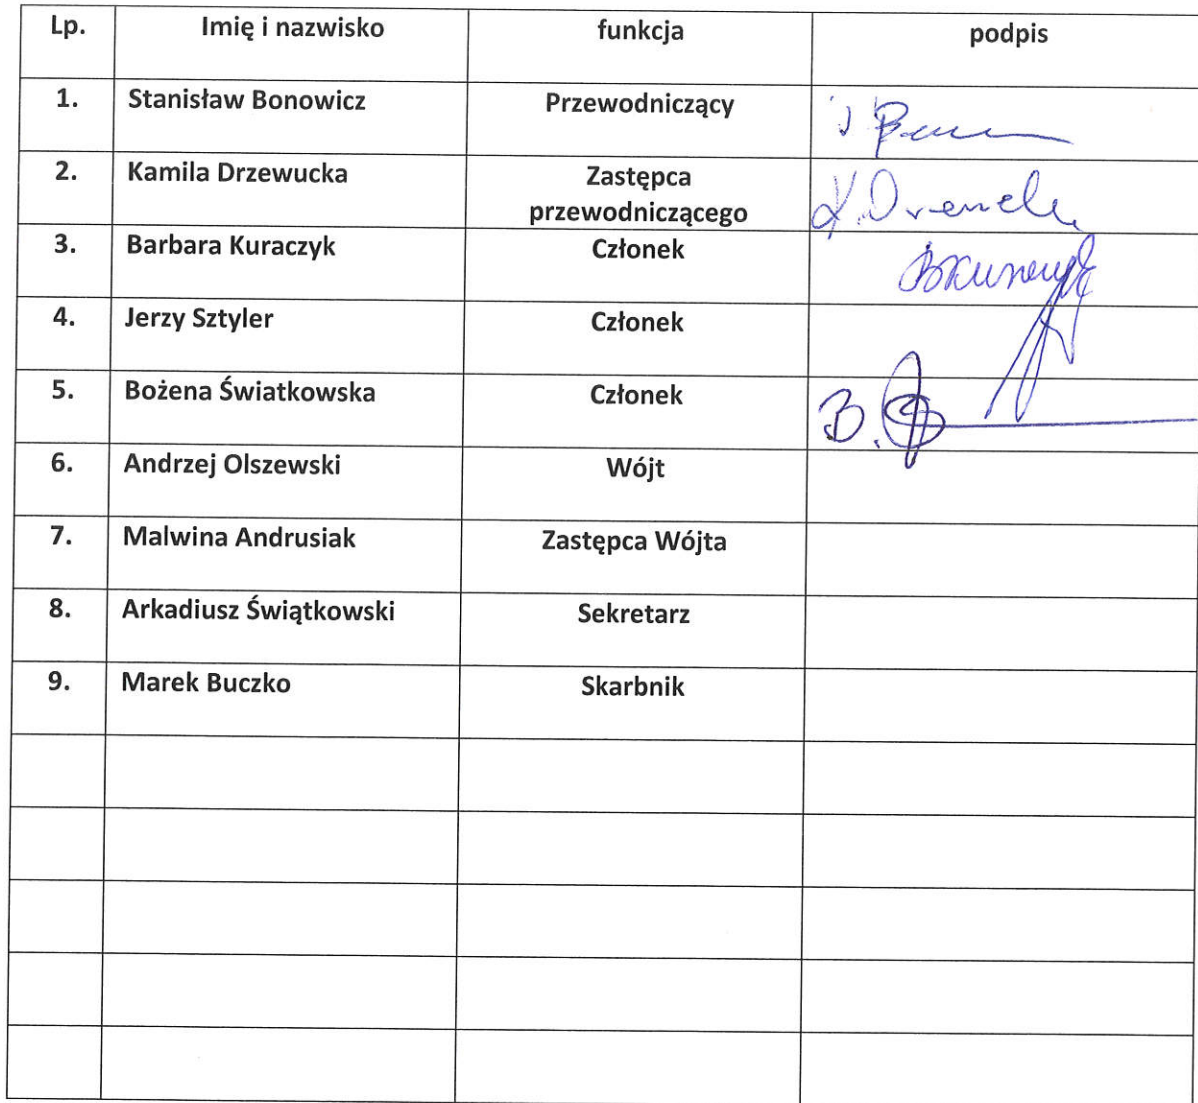 Lp. Imię i nazwisko funkcja podpis
1. Stanisław Bonowicz Przewodniczący
2. Kamila Drzewucka Zastępca
przewodniczącego
3. Barbara Kuraczyk Członek
4. Jerzy Sztyler Członek
5. Bożena Światkowska Członek
6. Andrzej Olszewski Wójt
7. Malwina Andrusiak Zastępca Wójta
8. Arkadiusz Świątkowski Sekretarz
9. Marek Buczko Skarbnik